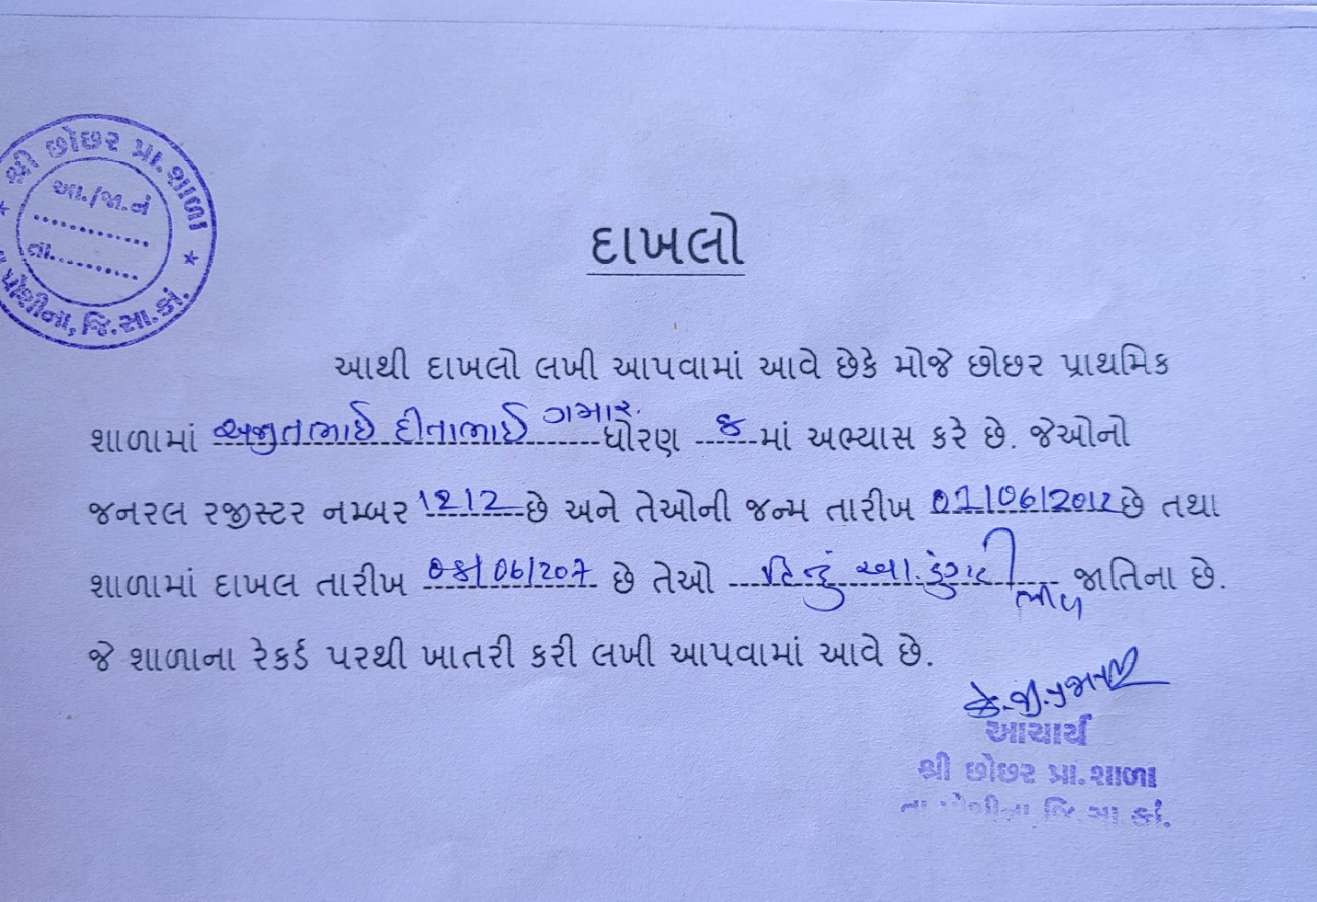 શ્રી છોછર પ્રા. શાળા
આ./જા.નં
તા.
પોશીના, જિ.સા.કાં.
દાખલો
આથી દાખલો લખી આપવામાં આવે છેકે મોજે છોછર પ્રાથમિક
શાળામાં અજીતભાઈ દીતાભાઈ ગમાર ધોરણ ૪ માં અભ્યાસ કરે છે. જેઓનો
જનરલ રજીસ્ટર નમ્બર 1212 છે અને તેઓની જન્મ તારીખ 01/06/2012 છે તથા
શાળામાં દાખલ તારીખ છે તેઓ હિન્દુ આ. ડુંગરી ભીલ જાતિના છે.
જે શાળાના રેકર્ડ પરથી ખાતરી કરી લખી આપવામાં આવે છે.
આચાર્ય
શ્રી છોછર પ્રા. શાળા
તા પોશીના જિ સા કાં.